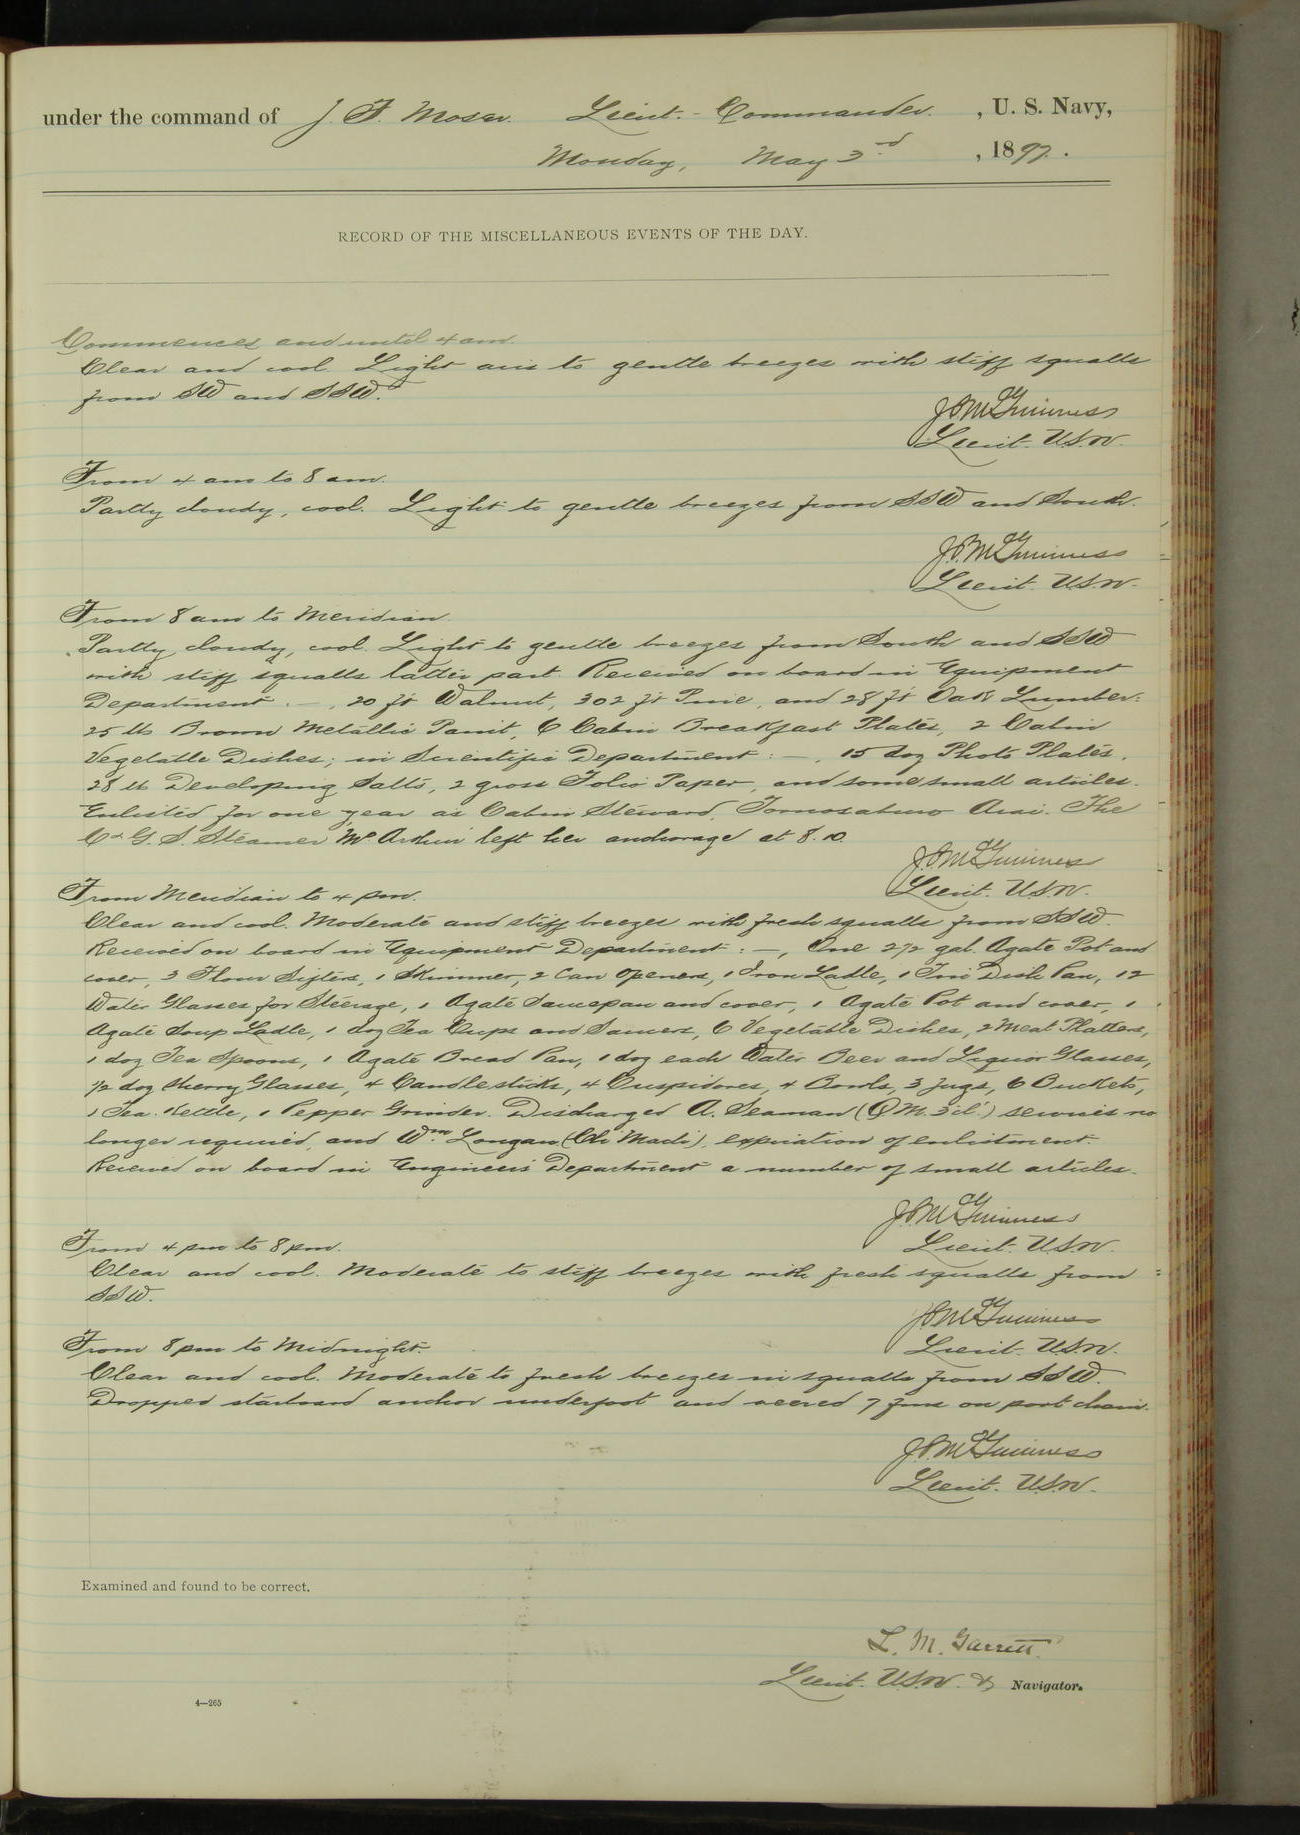 under the command of J. F. Moser. Lieut.-Commander. , U. S. Navy,
Monday, May 3rd , 1897.
RECORD OF THE MISCELLANEOUS EVENTS OF THE DAY.
Commences and until 4 am.
Clear and cool. Light airs to gentle breezes with stiff squalls
from SW and SSW.
Lieut. U.S.N.
From 4 am to 8 am.
Partly cloudy, cool. Light to gentle breezes from SSW and South.
Lieut. U.S.N.
From 8 am to Meridian.
Partly cloudy, cool. Light to gentle breezes from South and SSW
with stiff squalls latter part. Received on board in Equipment
Department :—, 20 ft Walnut, 302 ft Pine, and 28 ft Oak Lumber:
25 lbs Brown Metallic Paint, 6 Cabin Breakfast Plates, 2 Cabin
Vegetable Dishes; in Scientific Department :—, 15 doz Photo Plates,
28 lb Developing Salts, 2 gross Folio Paper, and some small articles.
Enlisted for one year as Cabin Steward, Arai. The
C & G. S. Steamer McArthur left her anchorage at 8.10.
Lieut. U.S.N.
From Meridian to 4 pm.
Clear and cool. Moderate and stiff breezes with fresh squalls from SSW.
Received on board in Equipment Department :—, One gal. Agate Pot and
cover, 3 Flour Sifters, 1 Skimmer, 2 Can Openers, 1 Iron Ladle, 1 Tin Dish Pan, 12
Water Glasses for Steerage, 1 Agate Saucepan and cover, 1 Agate Pot and cover, 1
Agate Soup Ladle, 1 doz Tea Cups and Saucers, 6 Vegetable Dishes, 2 Meat Platters,
1 doz Tea Spoons, 1 Agate Bread Pan, 1 doz each Water Beer and Liquor Glasses,
1/2 doz Sherry Glasses, 4 Candlesticks, 4 Cuspidores, 4 Bowls, 3 Jugs, 6 Buckets,
1 Tea Kettle, 1 Pepper Grinder. Discharged A. Seaman (Q.M. 3cl.) services no
longer required, and Wm. Longan (Ch Mach), expiration of enlistment.
Received on board in Engineers Department a number of small articles.
Lieut. U.S.N.
From 4 pm to 8 pm.
Clear and cool. Moderate to stiff breezes with fresh squalls from
SSW.
Lieut. U.S.N.
From 8 pm to Midnight.
Clear and cool. Moderate to fresh breezes in squalls from SSW.
Dropped starboard anchor underfoot and veered 7 fms on port chain.
Lieut. U.S.N.
Examined and found to be correct.
L. M. Garrett.
Lieut. U.S.N. & Navigator.
4—265